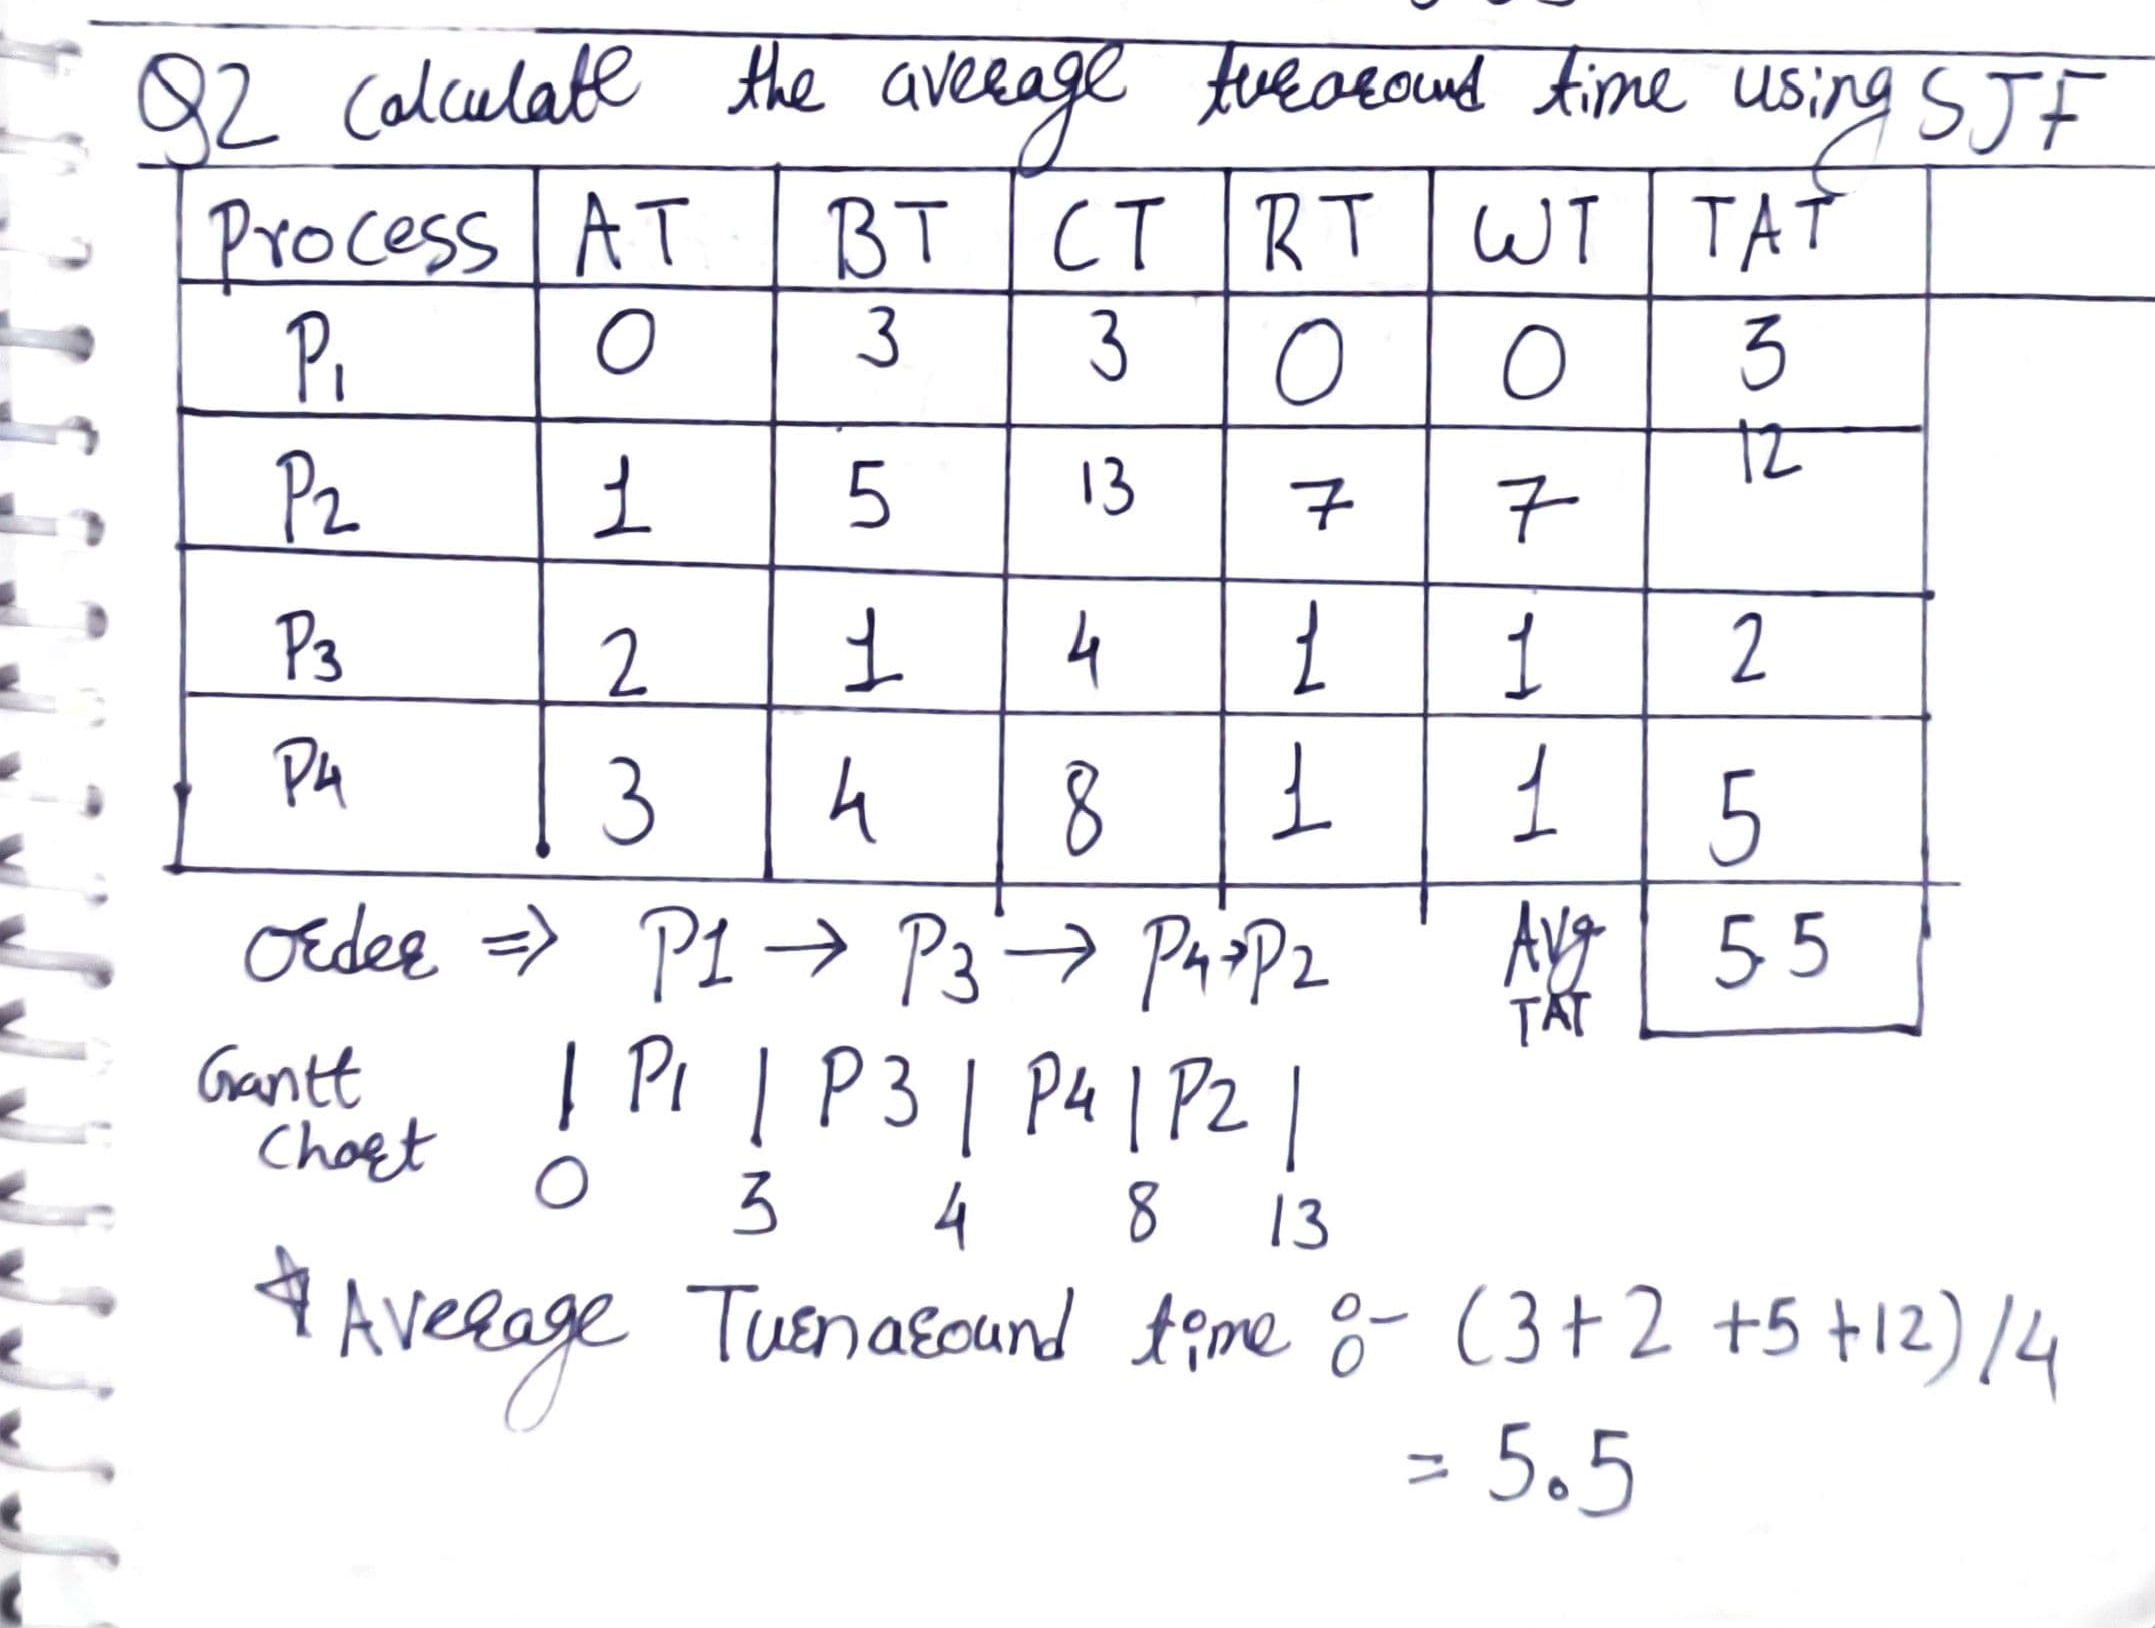 Q2 Calculate the average turaround time using SJF
Process AT BT CT RT WT TAT
P1 0 3 3 0 0 3
P2 1 5 13 7 7 12
P3 2 1 4 1 1 2
P4 3 4 8 1 1 5
Order => P1 → P3 → P4→P2 Avg TAT 5.5
Gantt Chart | P1 | P3 | P4 | P2 |
0 3 4 8 13
Average Turnaround time :- (3+2+5+12)/4
= 5.5